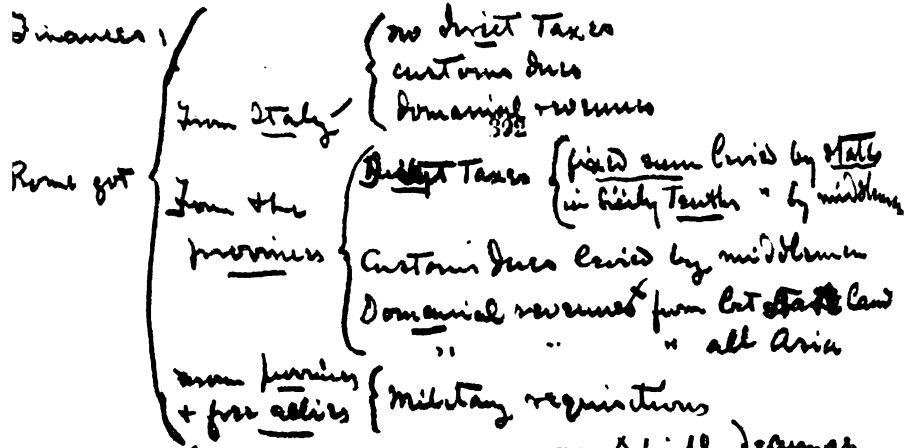 Finances:
Rome got
From Italy
no direct Taxes
customs dues
domanial revenues
392
From the
provinces
Direct Taxes
fixed sum levied by State
in Sicily Tenths " by middlemen
Customs dues levied by middlemen
Domanial revenues x from let State land
" " " all Asia
From provinces
+ free allies
Military requisitions